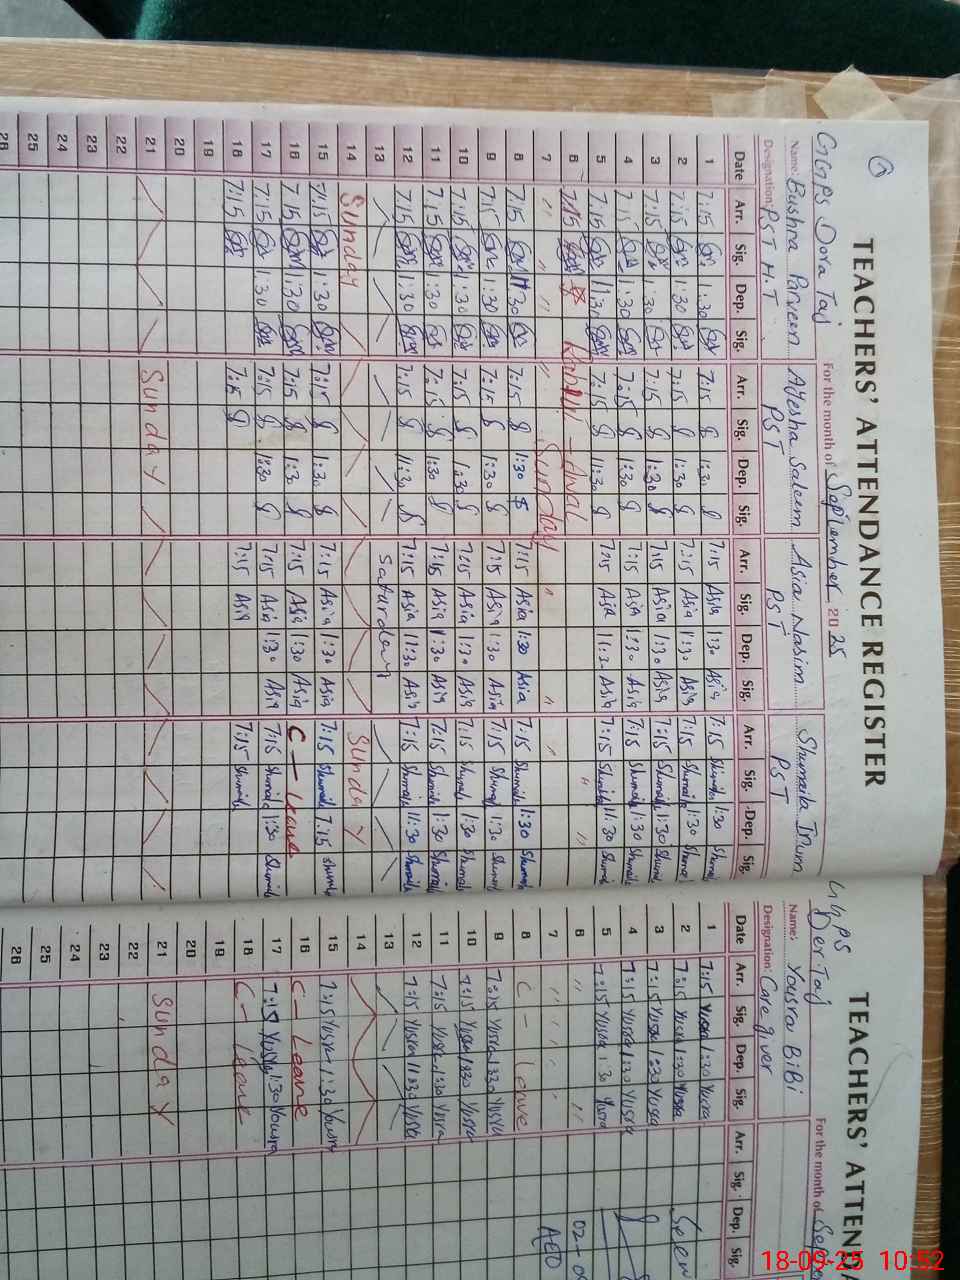 TEACHERS' ATTENDANCE REGISTER
GGPS Dora Taj For the month of September 2025
Name: Bushra Parveen Ayesha Saleem Asia Nasim Shumaila Irum
Designation: PST H.T PST PST PST
Date Arr. Sig. Dep. Sig. Arr. Sig. Dep. Sig. Arr. Sig. Dep. Sig. Arr. Sig. Dep. Sig.
1 7:15 1:30 7:15 1:30 7:15 Asia 1:30 Asia 7:15 1:30
2 7:15 1:30 7:15 1:30 7:15 Asia 1:30 Asia 7:15 1:30
3 7:15 1:30 7:15 1:30 7:15 Asia 1:30 Asia 7:15 1:30
4 7:15 1:30 7:15 1:30 7:15 Asia 1:30 Asia 7:15 1:30
5 7:15 11:30 7:15 11:30 7:15 Asia 11:30 Asia 7:15 11:30
6 7:15 " "
7 " " " " Sunday " " "
8 7:15 1:30 7:15 1:30 7:15 Asia 1:30 Asia 7:15 1:30
9 7:15 1:30 7:15 1:30 7:15 Asia 1:30 Asia 7:15 1:30
10 7:15 1:30 7:15 1:30 7:15 Asia 1:30 Asia 7:15 1:30
11 7:15 1:30 7:15 1:30 7:15 Asia 1:30 Asia 7:15 1:30
12 7:15 11:30 7:15 11:30 7:15 Asia 11:30 Asia 7:15 11:30
13 Saturday
14 Sunday Sunday
15 7:15 1:30 7:15 1:30 7:15 Asia 1:30 Asia 7:15 7:15
16 7:15 1:30 7:15 1:30 7:15 Asia 1:30 Asia C - Leave
17 7:15 1:30 7:15 1:30 7:15 Asia 1:30 Asia 7:15 1:30
18 7:15 7:15 7:15 Asia 7:15
19
20
21 Sunday
22
23
24
25
26
TEACHERS' ATTEND
GGPS Der Taj For the month of Sep
Name: Yousra BiBi
Designation: Care giver
Date Arr. Sig. Dep. Sig. Arr. Sig. Dep. Sig.
1 7:15 Yousra 1:30 Yousra
2 7:15 Yousra 1:30 Yousra Seen
3 7:15 Yousra 1:30 Yousra
4 7:15 Yousra 1:30 Yousra
5 7:15 Yousra 1:30 Yousra
6 " " 02-0
7 " " " " AEO
8 C - Leave
9 7:15 Yousra 1:30 Yousra
10 7:15 Yousra 1:30 Yousra
11 7:15 Yousra 1:30 Yousra
12 7:15 Yousra 11:30 Yousra
13
14
15 7:15 Yousra 1:30 Yousra
16 C - Leave
17 7:15 Yousra 1:30 Yousra
18 C - Leave
19
20
21 Sunday
22
23
24
25
26
18-09-25 10:52